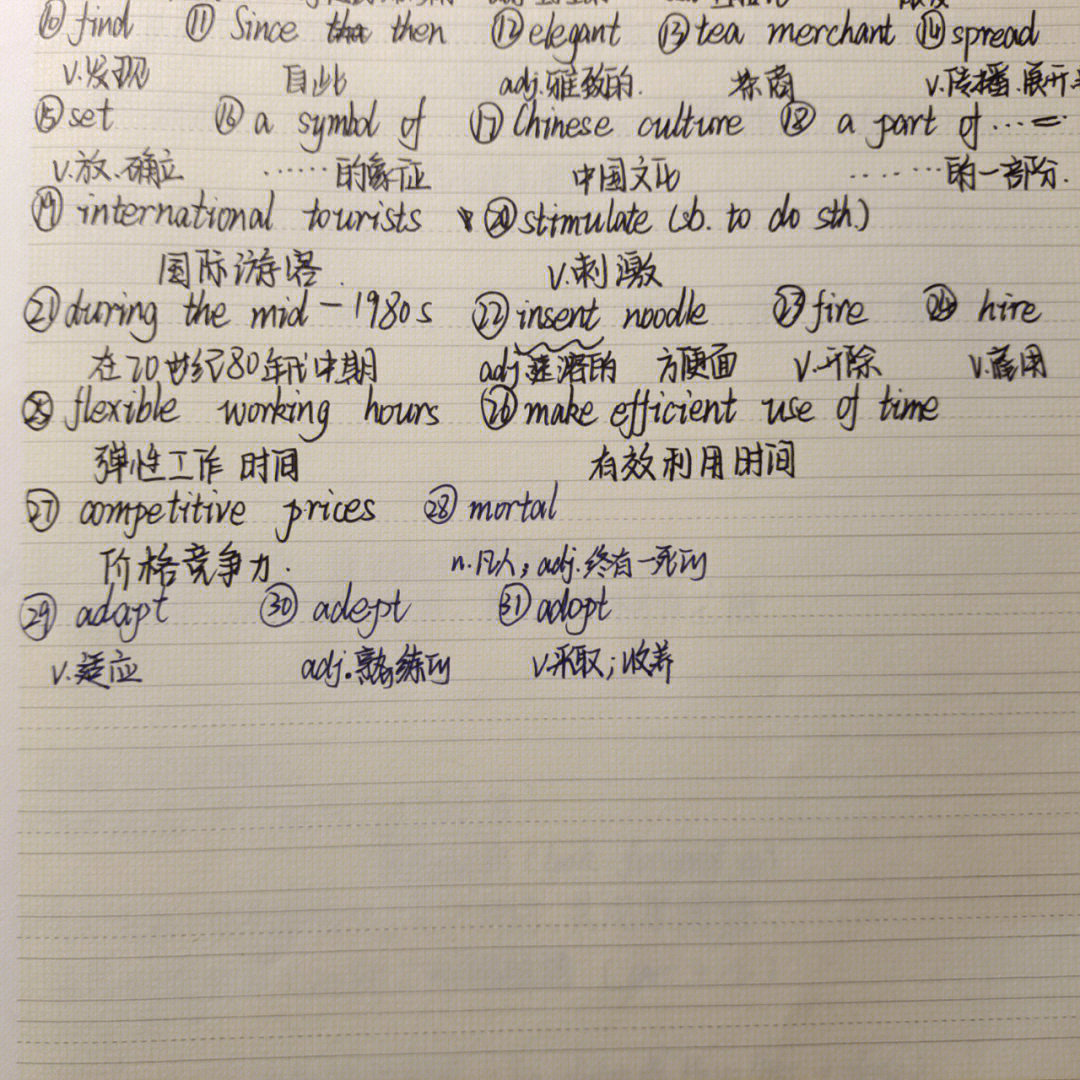 ⑩ find ⑪ Since then ⑫ elegant ⑬ tea merchant ⑭ spread
v.发现 自此 adj.雅致的. 茶商 v.传播.展开
⑮ set ⑯ a symbol of ⑰ Chinese culture ⑱ a part of …
v.放.确立 ……的象征 中国文化 ……的一部分.
⑲ international tourists ⑳ stimulate (sb. to do sth.)
国际游客. v.刺激
㉑ during the mid-1980s ㉒ insent noodle ㉓ fire ㉔ hire
在20世纪80年代中期 adj 方便面 v.开除 v.雇用
㉕ flexible working hours ㉖ make efficient use of time
弹性工作时间 有效利用时间
㉗ competitive prices ㉘ mortal
价格竞争力. n.凡人; adj.终有一死的
㉙ adapt ㉚ adept ㉛ adopt
v.适应 adj.熟练的 v.采取;收养